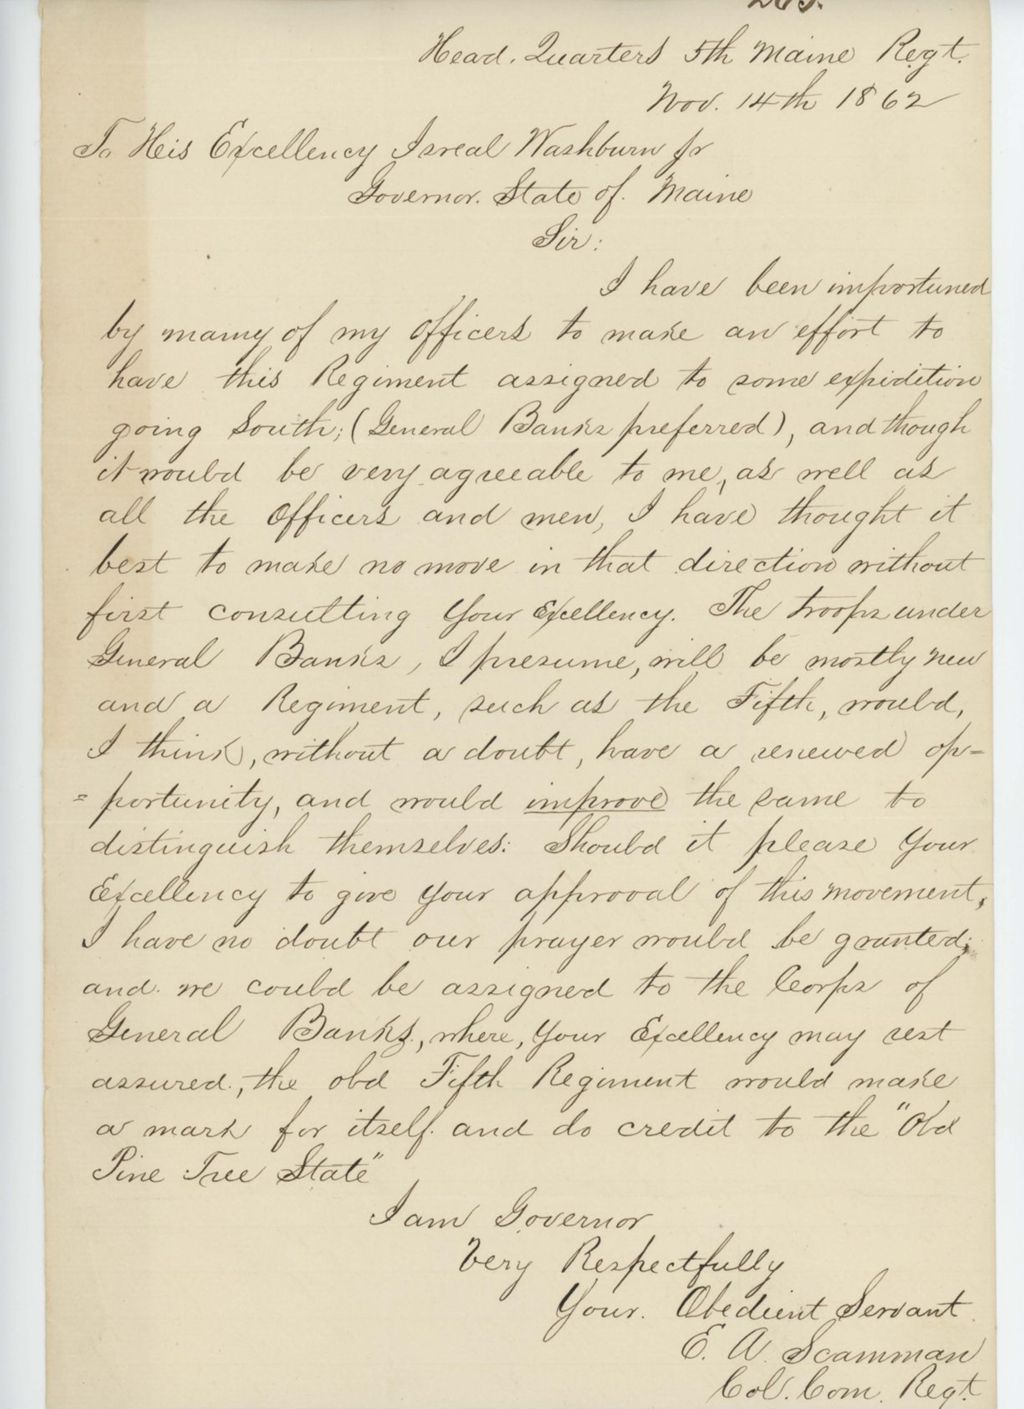 Head. Quarters 5th Maine Regt.
Nov. 14th 1862
To His Excellency Isreal Washburn Jr
Governor. State of. Maine
Sir:
I have been importuned
by many of my Officers to make an effort to
have this Regiment assigned to some expidition
going South; (General Banks preferred), and though
it would be very agreeable to me, as well as
all the Officers and men, I have thought it
best to make no move in that direction without
first consulting Your Excellency. The troops under
General Banks, I presume, will be mostly new
and a Regiment, such as the Fifth, would,
I think, without a doubt, have a renewed op=
=portunity, and would improve the same to
distinguish themselves: Should it please Your
Excellency to give your approval of this movement,
I have no doubt our prayer would be granted;
and we could be assigned to the Corps of
General Banks, where, Your Excellency may rest
assured, the old Fifth Regiment would make
a mark for itself and do credit to the "Old
Pine Tree State"
I am Governor
Very Respectfully
Your. Obedient Servant
E. A. Scamman
Col. Com. Regt.